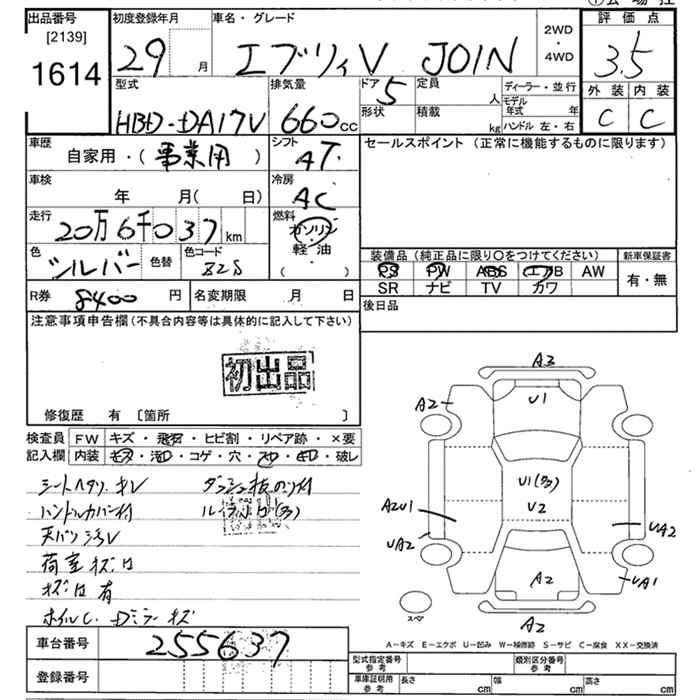 出品番号
[2139]
1614
初度登録年月
29 月
車名・グレード
エブリィV JOIN
2WD
・
4WD
評価点
3.5
外装 内装
C C
型式
HBD-DA17V
排気量
660cc
ドア 5
形状
定員 人
積載 kg
ディーラー・並行
モデル
年式 年
ハンドル 左・右
車歴
自家用・(事業用)
シフト
AT
セールスポイント(正常に機能するものに限ります)
車検
年 月(日)
冷房
AC
走行
20万6千037km
燃料
ガソリン
軽油
( )
色
シルバー
色替
色コード
Z2S
装備品(純正品に限り〇をつけてください)
新車保証書
PS PW ABS エアB AW
SR ナビ TV カワ
有・無
R券 8400円
名変期限 月 日
後日品
注意事項申告欄(不具合内容等は具体的に記入して下さい)
初出品
修復歴 有 [箇所 ]
検査員
記入欄
FW キズ・飛石・ヒビ割・リペア跡・×要
内装 キズ・汚れ・コゲ・穴・破レ
シートヘタリ、キレ
ハンドルカバー付
荷室キズ凹
キズ凹有
車台番号 255637
登録番号
A3
U1
A2
U1(多)
U2
A2U1
UA2
UA2
A2
UA1
A2
スペア
A-キズ E-エクボ U-凹み W-補修跡 S-サビ C-腐食 XX-交換済
型式指定番号
参考
類別区分番号
参考
車庫証明用
参考
長さ cm 幅 cm 高さ cm